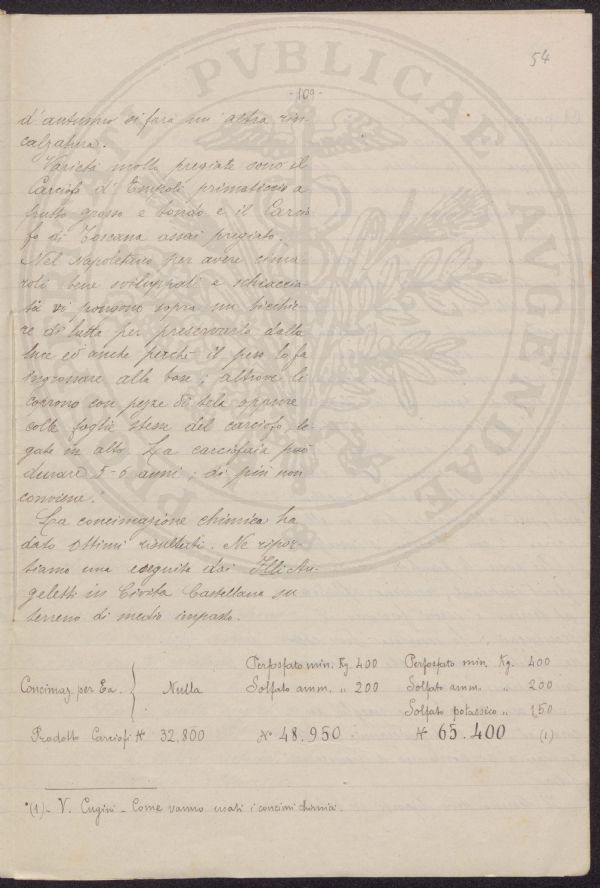 54
- 109 -
d'autunno si farà un' altra rin-
calzatura.
Varietà molto pregiate sono il
Carciofo d' Empoli primaticcio a
frutto grosso e tondo e il Carcio
fo di Toscana assai pregiato.
Nel Napoletano per avere cima
roli bene sviluppati e schiaccia
ti vi pongono sopra un bicchie
re di latta per preservarlo dalla
luce ed anche perchè il peso lo fa
ingrossare alla base; altrove li
coprono con pezze di tela oppure
colle foglie stesse del carciofo, le
gate in alto. La carciofaia può
durare 5-6 anni; di più non
conviene.
La concimazione chimica ha
dato ottimi risultati. Ne ripor-
tiamo una eseguita dai Flli An-
geletti in Civita Castellana su
terreno di medio impasto.
Perfosfato min. Kg. 400 Perfosfato min. Kg. 400
Concimaz. per Ea. { Nulla Solfato amm. " 200 Solfato amm. " 200
Solfato potassico " 150
Prodotto Carciofi N° 32.800 N° 48.950 N° 65.400 (1)
*(1) - V. Cugini - Come vanno usati i concimi chimici.
PVBLICAE
AVGENDAE